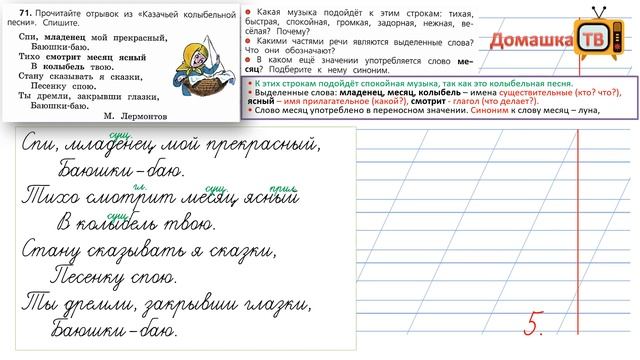 71. Прочитайте отрывок из «Казачьей колыбельной
песни». Спишите.
Спи, младенец мой прекрасный,
Баюшки-баю.
Тихо смотрит месяц ясный
В колыбель твою.
Стану сказывать я сказки,
Песенку спою.
Ты дремли, закрывши глазки,
Баюшки-баю.
М. Лермонтов
● Какая музыка подойдёт к этим строкам: тихая,
быстрая, спокойная, громкая, задорная, нежная, ве-
сёлая? Почему?
● Какими частями речи являются выделенные слова?
Что они обозначают?
● В каком ещё значении употребляется слово ме-
сяц? Подберите к нему синоним.
Домашка ТВ
• К этим строкам подойдёт спокойная музыка, так как это колыбельная песня.
• Выделенные слова: младенец, месяц, колыбель – имена существительные (кто? что?),
ясный – имя прилагательное (какой?), смотрит - глагол (что делает?).
• Слово месяц употреблено в переносном значении. Синоним к слову месяц – луна,
сущ.
Спи, младенец мой прекрасный,
Баюшки-баю.
гл. сущ. прил.
Тихо смотрит месяц ясный
сущ.
В колыбель твою.
Стану сказывать я сказки,
Песенку спою.
Ты дремли, закрывши глазки,
Баюшки-баю.
5.